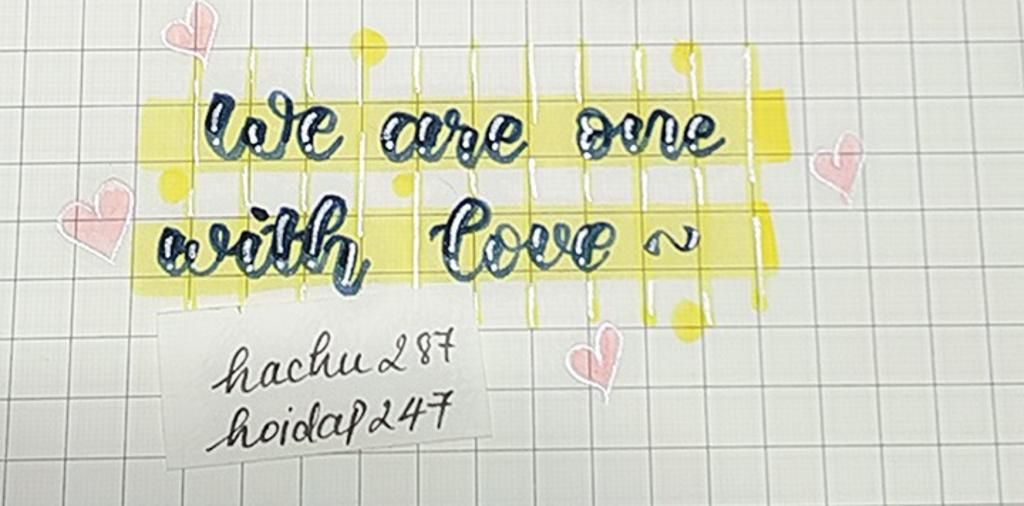 we are one
with love ~
hachu 287
hoidap247